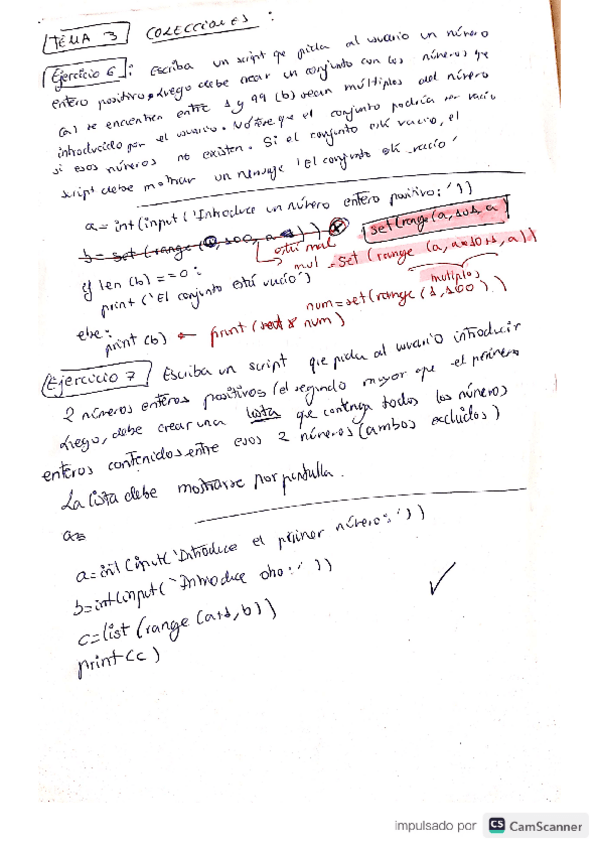 TEMA 3 COLECCIONES:
Ejercicio 6: Escriba un script que pida al usuario un número
entero positivo, luego debe crear un conjunto con los números que
(a) se encuentren entre 1 y 99 (b) sean múltiplos del número
introducido por el usuario. Nótese que el conjunto podría ser vacío
si esos números no existen. Si el conjunto está vacío, el
script debe mostrar un mensaje 'El conjunto está vacío'
a=int(input('Introduce un número entero positivo:'))
b=set(range(0,100,a
set(range(a,101,a)
está mal
mul=set(range(a,a*10+1,a))
multiplos
if len(b)==0:
print('El conjunto está vacío')
num=set(range(1,100))
else:
print(b) ← print( & num)
Ejercicio 7 Escriba un script que pida al usuario introducir
2 números enteros positivos (el segundo mayor que el primero
Luego, debe crear una lista que contenga todos los números
enteros contenidos entre esos 2 números (ambos excluidos)
La lista debe mostrarse por pantalla.
a=
a=int(input('Introduce el primer número:'))
b=int(input('Introduce otro:'))
c=list(range(a+1,b))
print(c)
impulsado por CS CamScanner